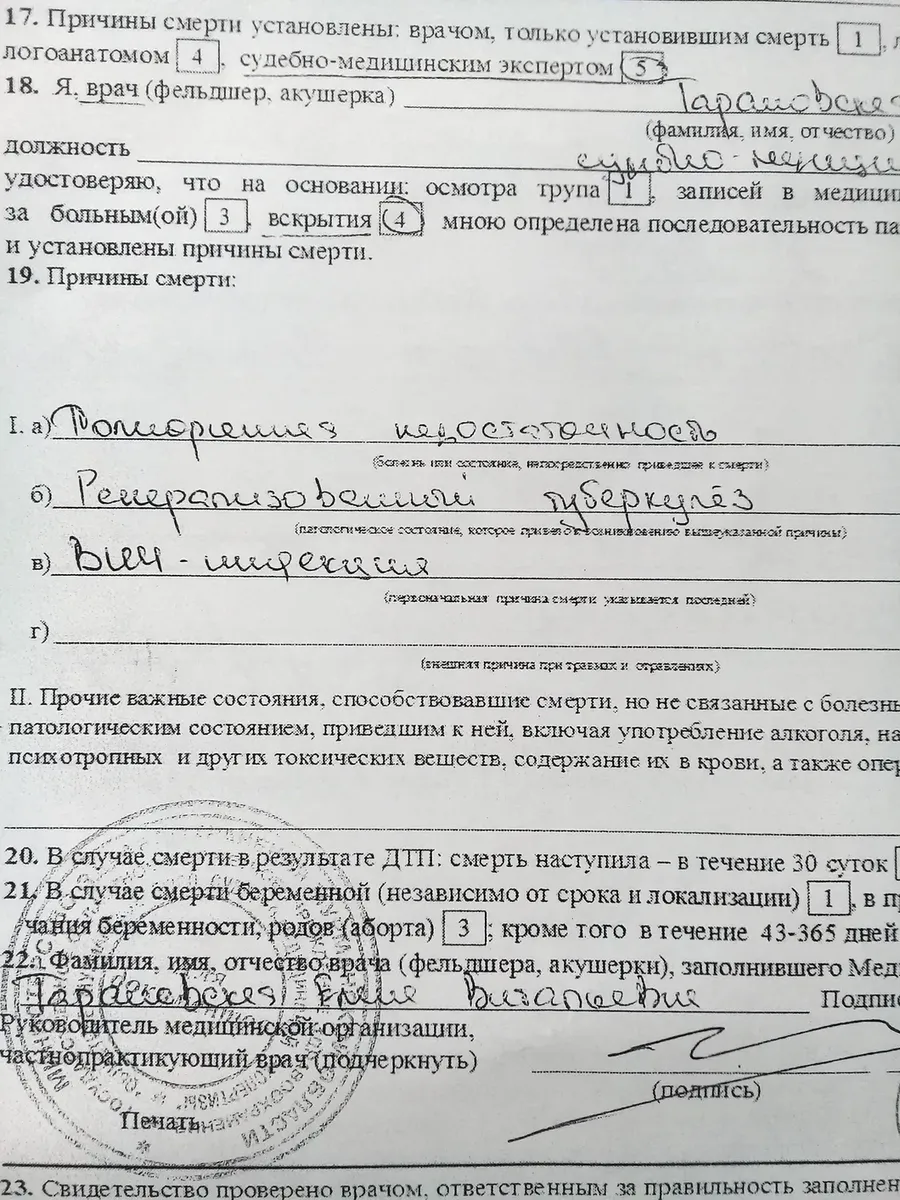 17. Причины смерти установлены: врачом, только установившим смерть 1,
логоанатомом 4, судебно-медицинским экспертом 5
18. Я, врач (фельдшер, акушерка) Тарановская
(фамилия, имя, отчество)
должность судебно-медици
удостоверяю, что на основании: осмотра трупа 1, записей в медици
за больным(ой) 3, вскрытия 4 мною определена последовательность па
и установлены причины смерти.
19. Причины смерти:
I. а) Полиорганная недостаточность
(болезнь или состояние, непосредственно приведшее к смерти)
б) Генерализованный туберкулёз
(патологическое состояние, которое привело к возникновению вышеуказанной причины)
в) ВИЧ-инфекция
(первоначальная причина смерти указывается последней)
г)
(внешняя причина при травмах и отравлениях)
II. Прочие важные состояния, способствовавшие смерти, но не связанные с болезнь
патологическим состоянием, приведшим к ней, включая употребление алкоголя, на
психотропных и других токсических веществ, содержание их в крови, а также опер
20. В случае смерти в результате ДТП: смерть наступила – в течение 30 суток
21. В случае смерти беременной (независимо от срока и локализации) 1, в п
чания беременности, родов (аборта) 3; кроме того в течение 43-365 дней
22. Фамилия, имя, отчество врача (фельдшера, акушерки), заполнившего Мед
Тарановская Елена Витальевна Подпис
Руководитель медицинской организации,
частнопрактикующий врач (подчеркнуть)
(подпись)
Печать
ОБЛАСТИ
23. Свидетельство проверено врачом, ответственным за правильность заполнен